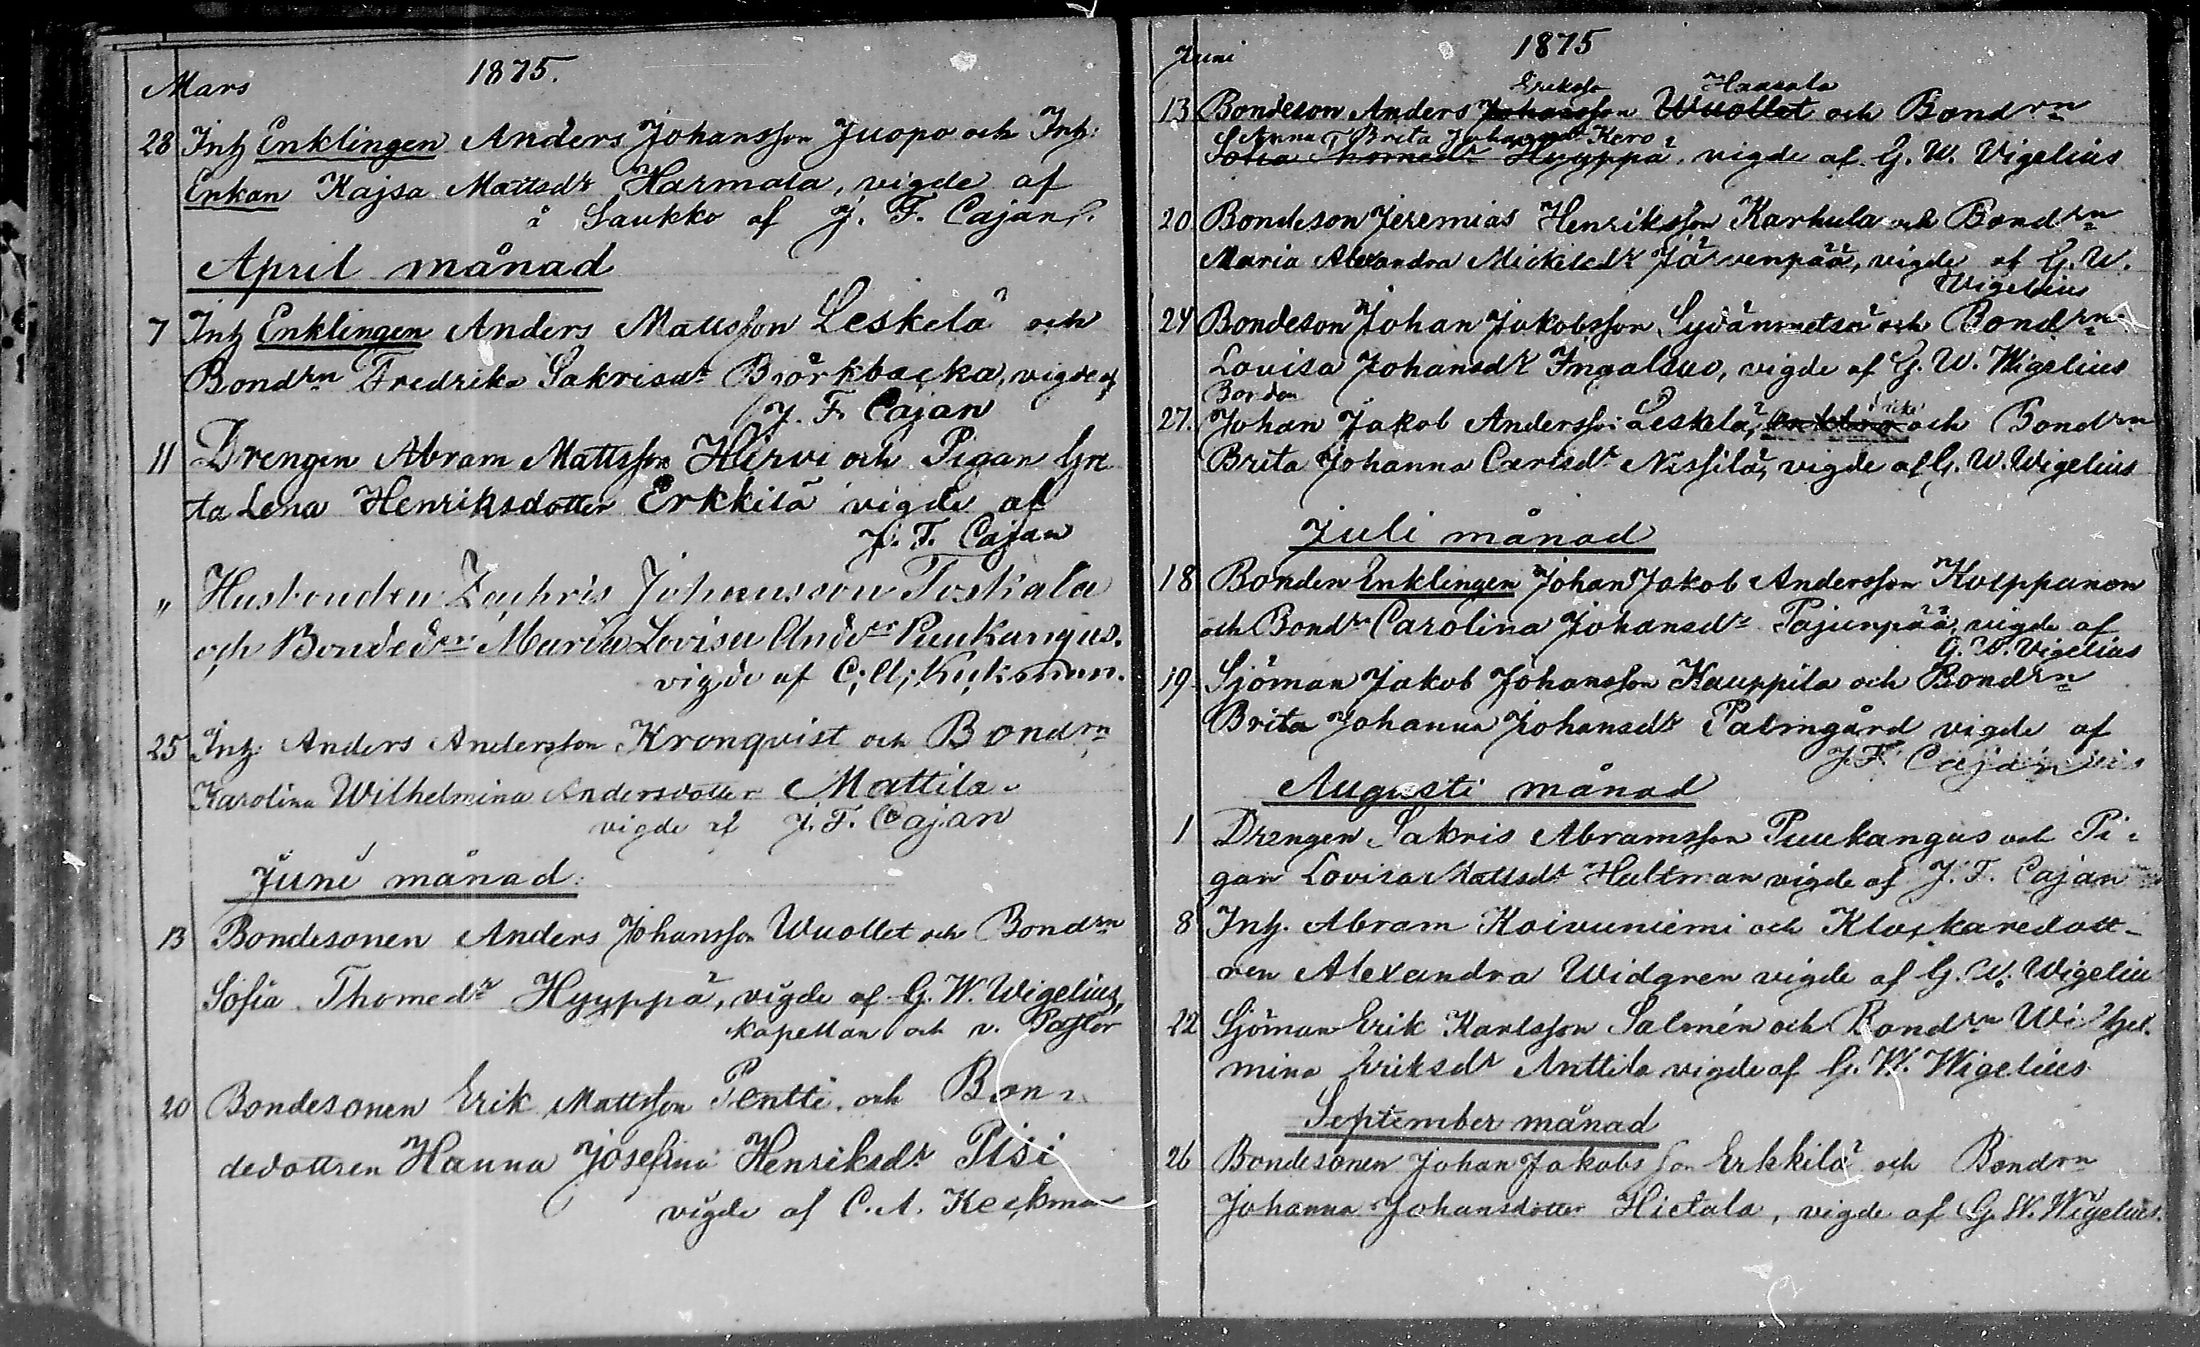 1875.
Mars
28 Inh Enklingen Anders Johansson Juopo och Inh:
Enkan Kajsa Mattsdr Harmala, vigde af
å Saukko af J. F. Cajan.
April månad
7 Inh Enklingen Anders Mattsson Leskelä och
Bondrn Fredrika Sakrisdr Björkbacka, vigde af
J. F. Cajan
11 Drengen Abram Mattsson Hirvi och Pigan Gre
ta Lena Henriksdotter Erkkilä vigde af
J. F. Cajan
" Husbonden Zachris Johansson Toskala
och Bondedrn Maria Lovisa Andrsdr Puukangas.
vigde af C. A. Keckman.
25 Inh. Anders Andersson Kronqvist och Bondrn
Karolina Wilhelmina Andersdotter Mattila.
vigde af J. F. Cajan
Juni månad.
13 Bondesonen Anders Johansson Wuollet och Bondrn
Sofia Thomedr Hyyppä, vigde af G. W. Wigelius,
kapellan och v. Pastor
20 Bondesonen Erik Mattsson Pentti och Bon-
dedottren Hanna Josefina Henriksdr Pisi
vigde af C. A. Keckman
1875
Juni
Eriksson Haasala
13 Bondeson Anders Johansson Wuollet och Bondrn
Anna Brita Johansdr Kero
Sofia Thomedr Hyyppä, vigde af G. W. Vigelius
20 Bondeson Jeremias Henriksson Karhula och Bondrn
Maria Alexandra Mickelsdr Järvenpää, vigde af G. W.
Wigelius
24 Bondeson Johan Jakobsson Sydänmetsä och Bondrn
Lovisa Johansdr Ingalsuo, vigde af G. W. Wigelius
Bonden
27. Johan Jakob Andersson Leskelä, och Bondrn
Brita Johanna Carlsdr Nissilä, vigde af G. W. Wigelius
Juli månad
18 Bonden Enklingen Johan Jakob Andersson Kolppanen
och Bondrn Carolina Johansdr Pajunpää, vigde af
G. W. Vigelius
19 Sjöman Jakob Johansson Kauppila och Bondrn
Brita Johanna Johansdr Palmgård vigde af
J. F. Cajan
Augusti månad
1 Drengen Sakris Abramsson Puukangas och Pi-
gan Lovisa Mattsdr Hultman vigde af J. F. Cajan
8 Inh. Abram Koivuniemi och Klockaredott-
ren Alexandra Widgren vigde af G. W. Wigeliu
22 Sjöman Erik Karlsson Salmén och Bondrn Wilhel-
mina Eriksdr Anttila vigde af G. W. Wigelius
September månad
26 Bondesonen Johan Jakobsson Erkkilä och Bondrn
Johanna Johansdotter Hietala, vigde af G. W. Wigelius.